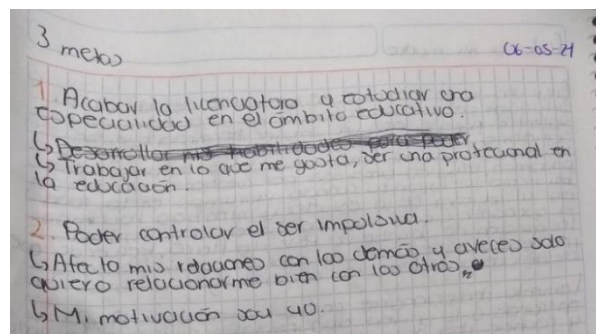 3 metas
06-05-21
1. Acabar la licenciatura y estudiar una
especialidad en el ámbito educativo.
↳ Desarrollar mis habilidades para poder
↳ Trabajar en lo que me gusta, ser una profecional en
la educación.
2. Poder controlar el ser impulsiva.
↳ Afecto mis relaciones con los demás y aveces solo
quiero relacionarme bien con los otros.
↳ Mi motivación soy yo.